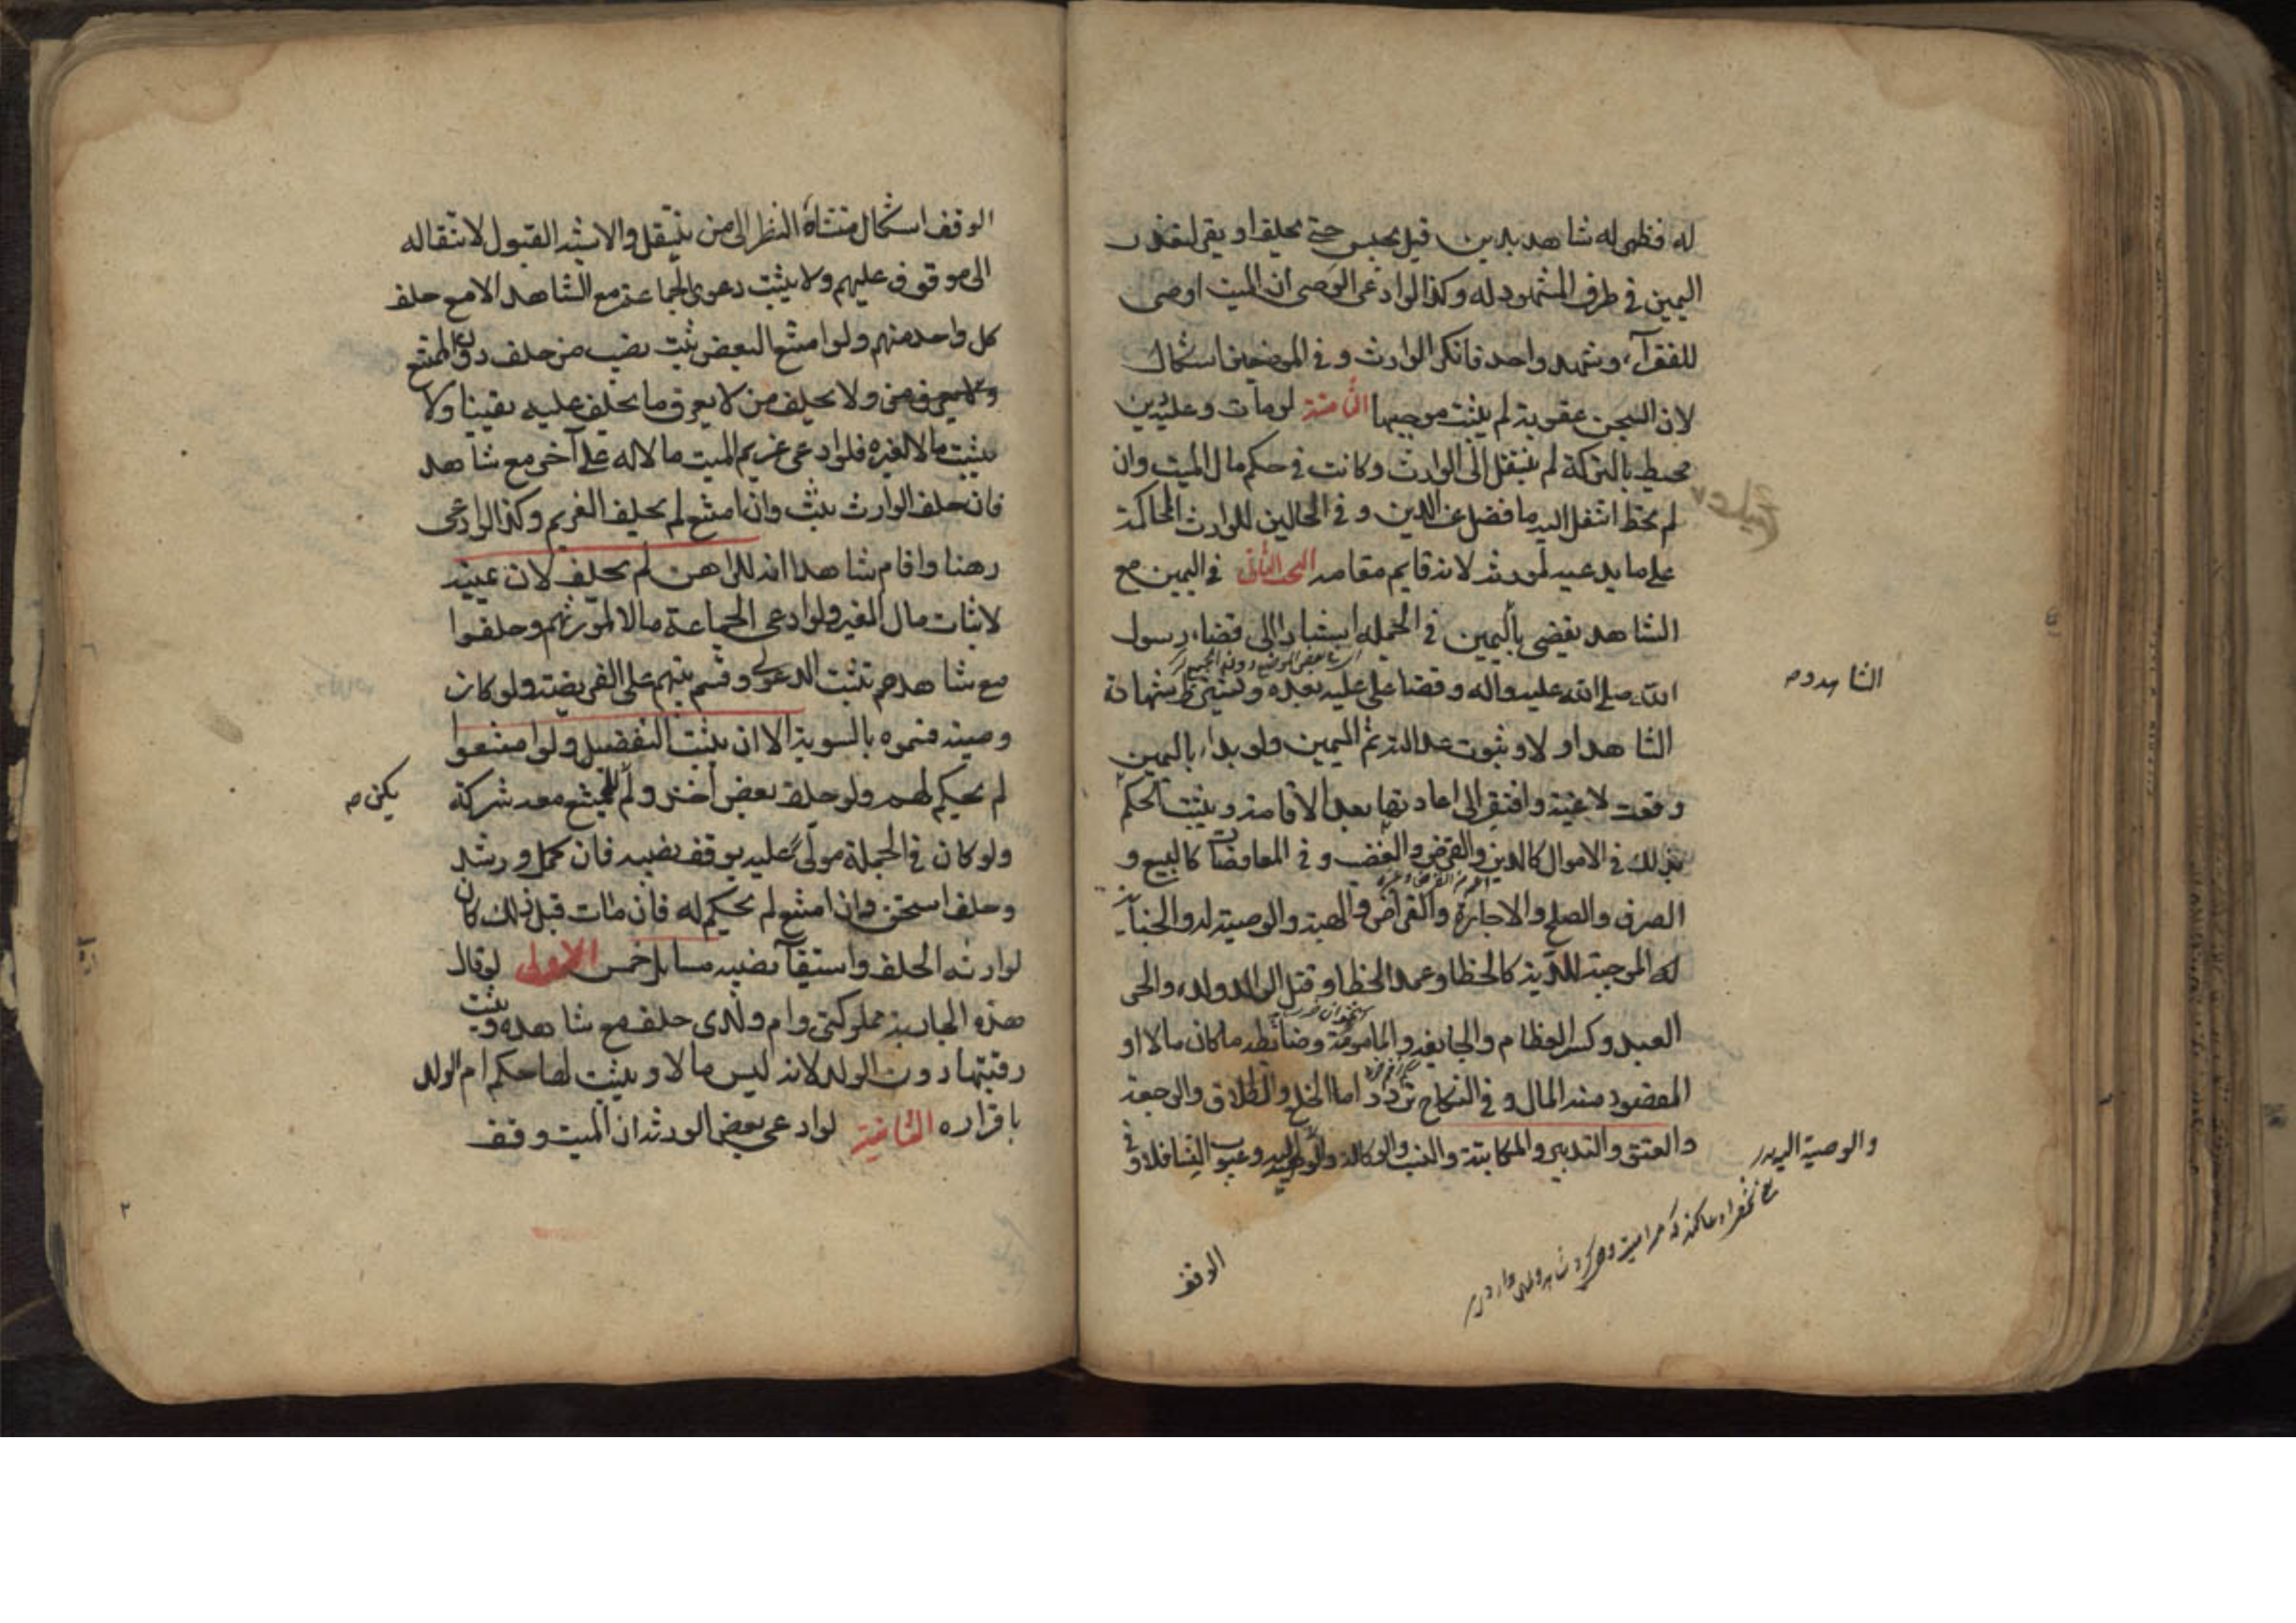 له فظهر له شاهد بدين قيل يحبس حتى يحلف او يقر لتعذر
اليمين في طرف المشهود له وكذا لو ادعى الوصي ان الميت اوصى
للفقراء وشهد واحد فانكر الوارث وفي الموضعين اشكال
لان السجن عقوبة لم يثبت موجبها الثامنة لو مات وعليه دين
محيط بالتركة لم ينتقل الى الوارث وكانت في حكم مال الميت وان
لم يحط انتقل اليه ما فضل عن الدين وفي الحالين للوارث المحاكمة
على ما يدعيه لمورثه لانه قايم مقامه البحث الثاني في اليمين مع
الشاهد يقضى باليمين في الجملة استنادا الى قضاء رسول
الله صلى الله عليه واله وقضا علي عليه بعده ويشترط شهادة
الشاهد اولا وثبوت عدالته ثم اليمين ولو بداء باليمين
وقعت لاغية وافتقر الى اعادتها بعد الاقامة ويثبت الحكم
بذلك في الاموال كالدين والقرض والغصب وفي المعاوضات كالبيع و
الصرف والصلح والاجارة والقراض والهبة والوصية له والجناية
الموجبة للدية كالخطا وعمد الخطا وقتل الوالد ولده والحر
العبد وكسر العظام والجايفة والمامومة وضابطه ما كان مالا او
المقصود منه المال وفي النكاح تردد اما الخلع والطلاق والرجعة
والعتق والتدبير والمكاتبة والنسب والوكالة وعيوب النسا فلا وفي
الشاهد وم
والوصية اليه
الوقف
الوقف اشكال منشاه النظر الى من ينتقل والاشبه القبول لانتقاله
الى موقوف عليهم ولا يثبت دعوى الجماعة مع الشاهد الا مع حلف
كل واحد منهم ولو امتنع البعض ثبت نصيب من حلف دون الممتنع
ولا يحلف من لا يعرف ما يحلف عليه يقينا ولا
يثبت مالا لغيره فلو ادعى غريم الميت مالا له على آخر مع شاهد
فان حلف الوارث ثبت وان امتنع لم يحلف الغريم وكذا لو ادعى
رهنا واقام شاهدا انه للراهن لم يحلف لان يمينه
لاثبات مال الغير ولو ادعى الجماعة مالا لمورثهم وحلفوا
مع شاهدهم تثبت الدعوى وقسم بينهم على الفريضة ولو كان
وصية قسموه بالسوية الا ان يثبت التفضيل ولو امتنعوا
لم يحكم لهم ولو حلف بعض اخذ ولم للممتنع معه شركة
يكن م
ولو كان في الجملة مولى عليه يوقف نصيبه فان كمل ورشد
وحلف استحق وان امتنع لم يحكم له فان مات قبل ذلك كان
لوارثه الحلف واستيفآ نصيبه مسايل خمس الاولى لو قال
هذه الجارية مملوكتي وام ولدى حلف مع شاهده ويثبت
رقيتها دون الولد لانه ليس مالا ويثبت لها حكم ام الولد
باقراره الثانية لو ادعى بعض الورثة ان الميت وقف
٢